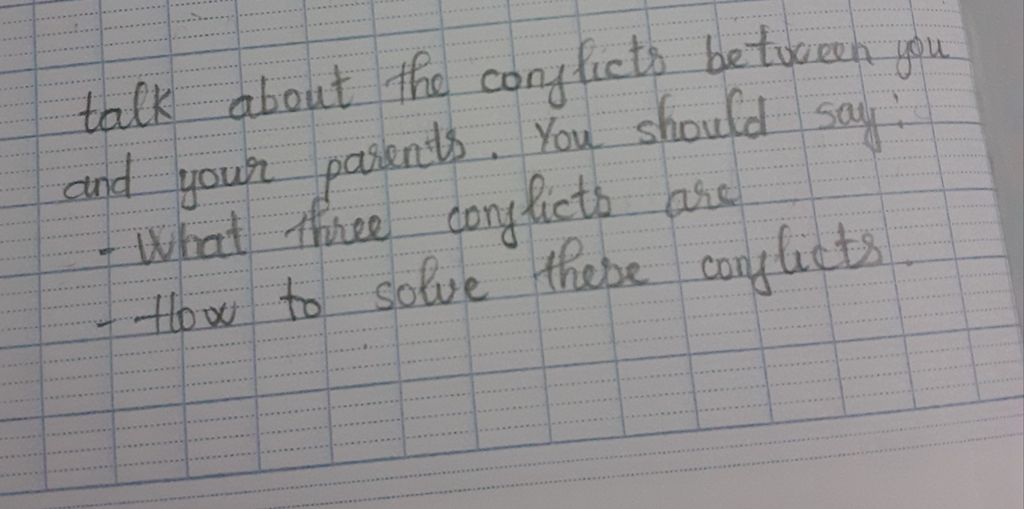 talk about the conflicts between you
and your parents. You should say:
- What three conflicts are
- How to solve these conflicts.